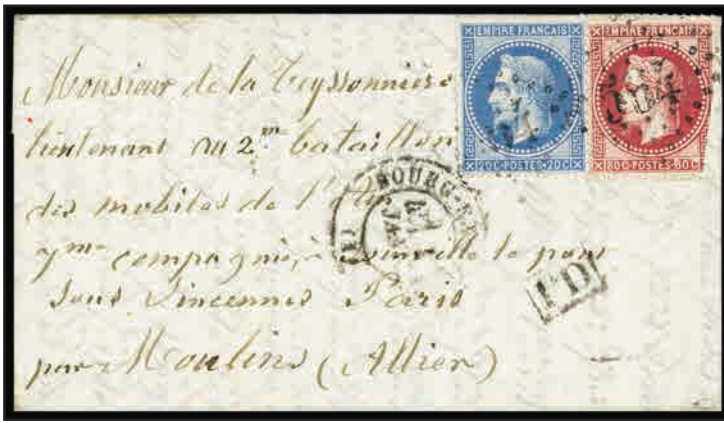 EMPIRE FRANÇAIS
20C·POSTES·20C
EMPIRE FRANÇAIS
80C·POSTES·80C
Monsieur de la Teyssonnière
lieutenant au 2me bataillon
des mobiles de l'Ain
7me compagnie, à Joinville le pont
sous Vincennes Paris
par Moulins (Allier)
BOURG-EN
JANV
(1)
PD